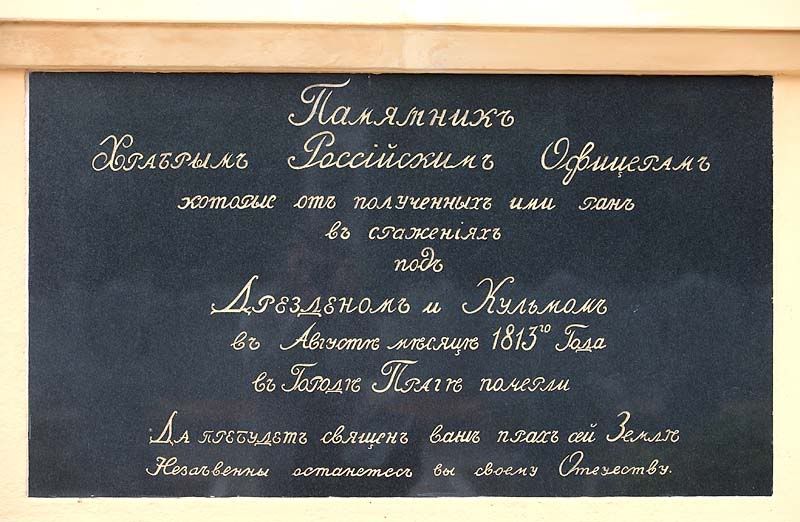 Памятникъ
Храбрымъ Россійскимъ Офицерамъ
которые отъ полученныхъ ими ранъ
въ сраженіяхъ
подъ
Дрезденомъ и Кульмомъ
въ Августѣ мѣсяцѣ 1813го Года
въ Городѣ Прагѣ померли
Да пребудетъ священъ вашъ прахъ сей Землѣ
Незабвенны останетесь вы своему Отечеству.